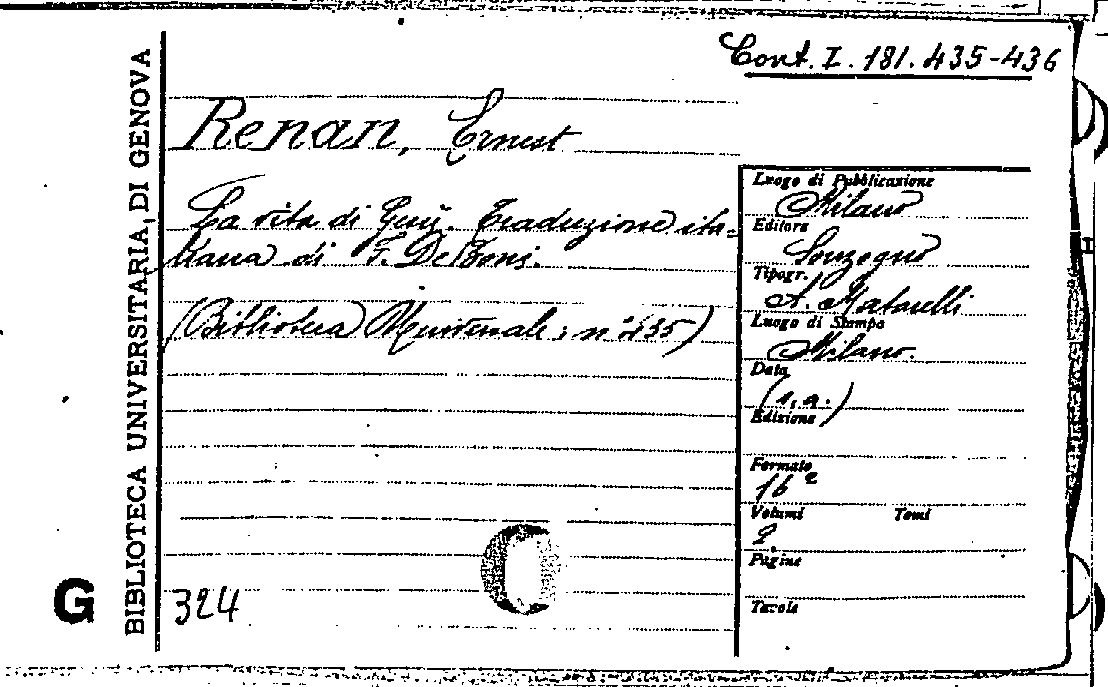 Cont. I. 181. 435-436
Renan, Ernest
La vita di Gesù. Traduzione ita=
liana di F. De Boni.
(Biblioteca Universale: n° 435)
Luogo di Pubblicazione
Milano
Editore
Sonzogno
Tipogr.
A. Matarelli
Luogo di Stampa
Milano.
Data
(s.a.)
Edizione
Formato
16°
Volumi Tomi
2.
Pagine
Tavole
BIBLIOTECA UNIVERSITARIA, DI GENOVA
G
324